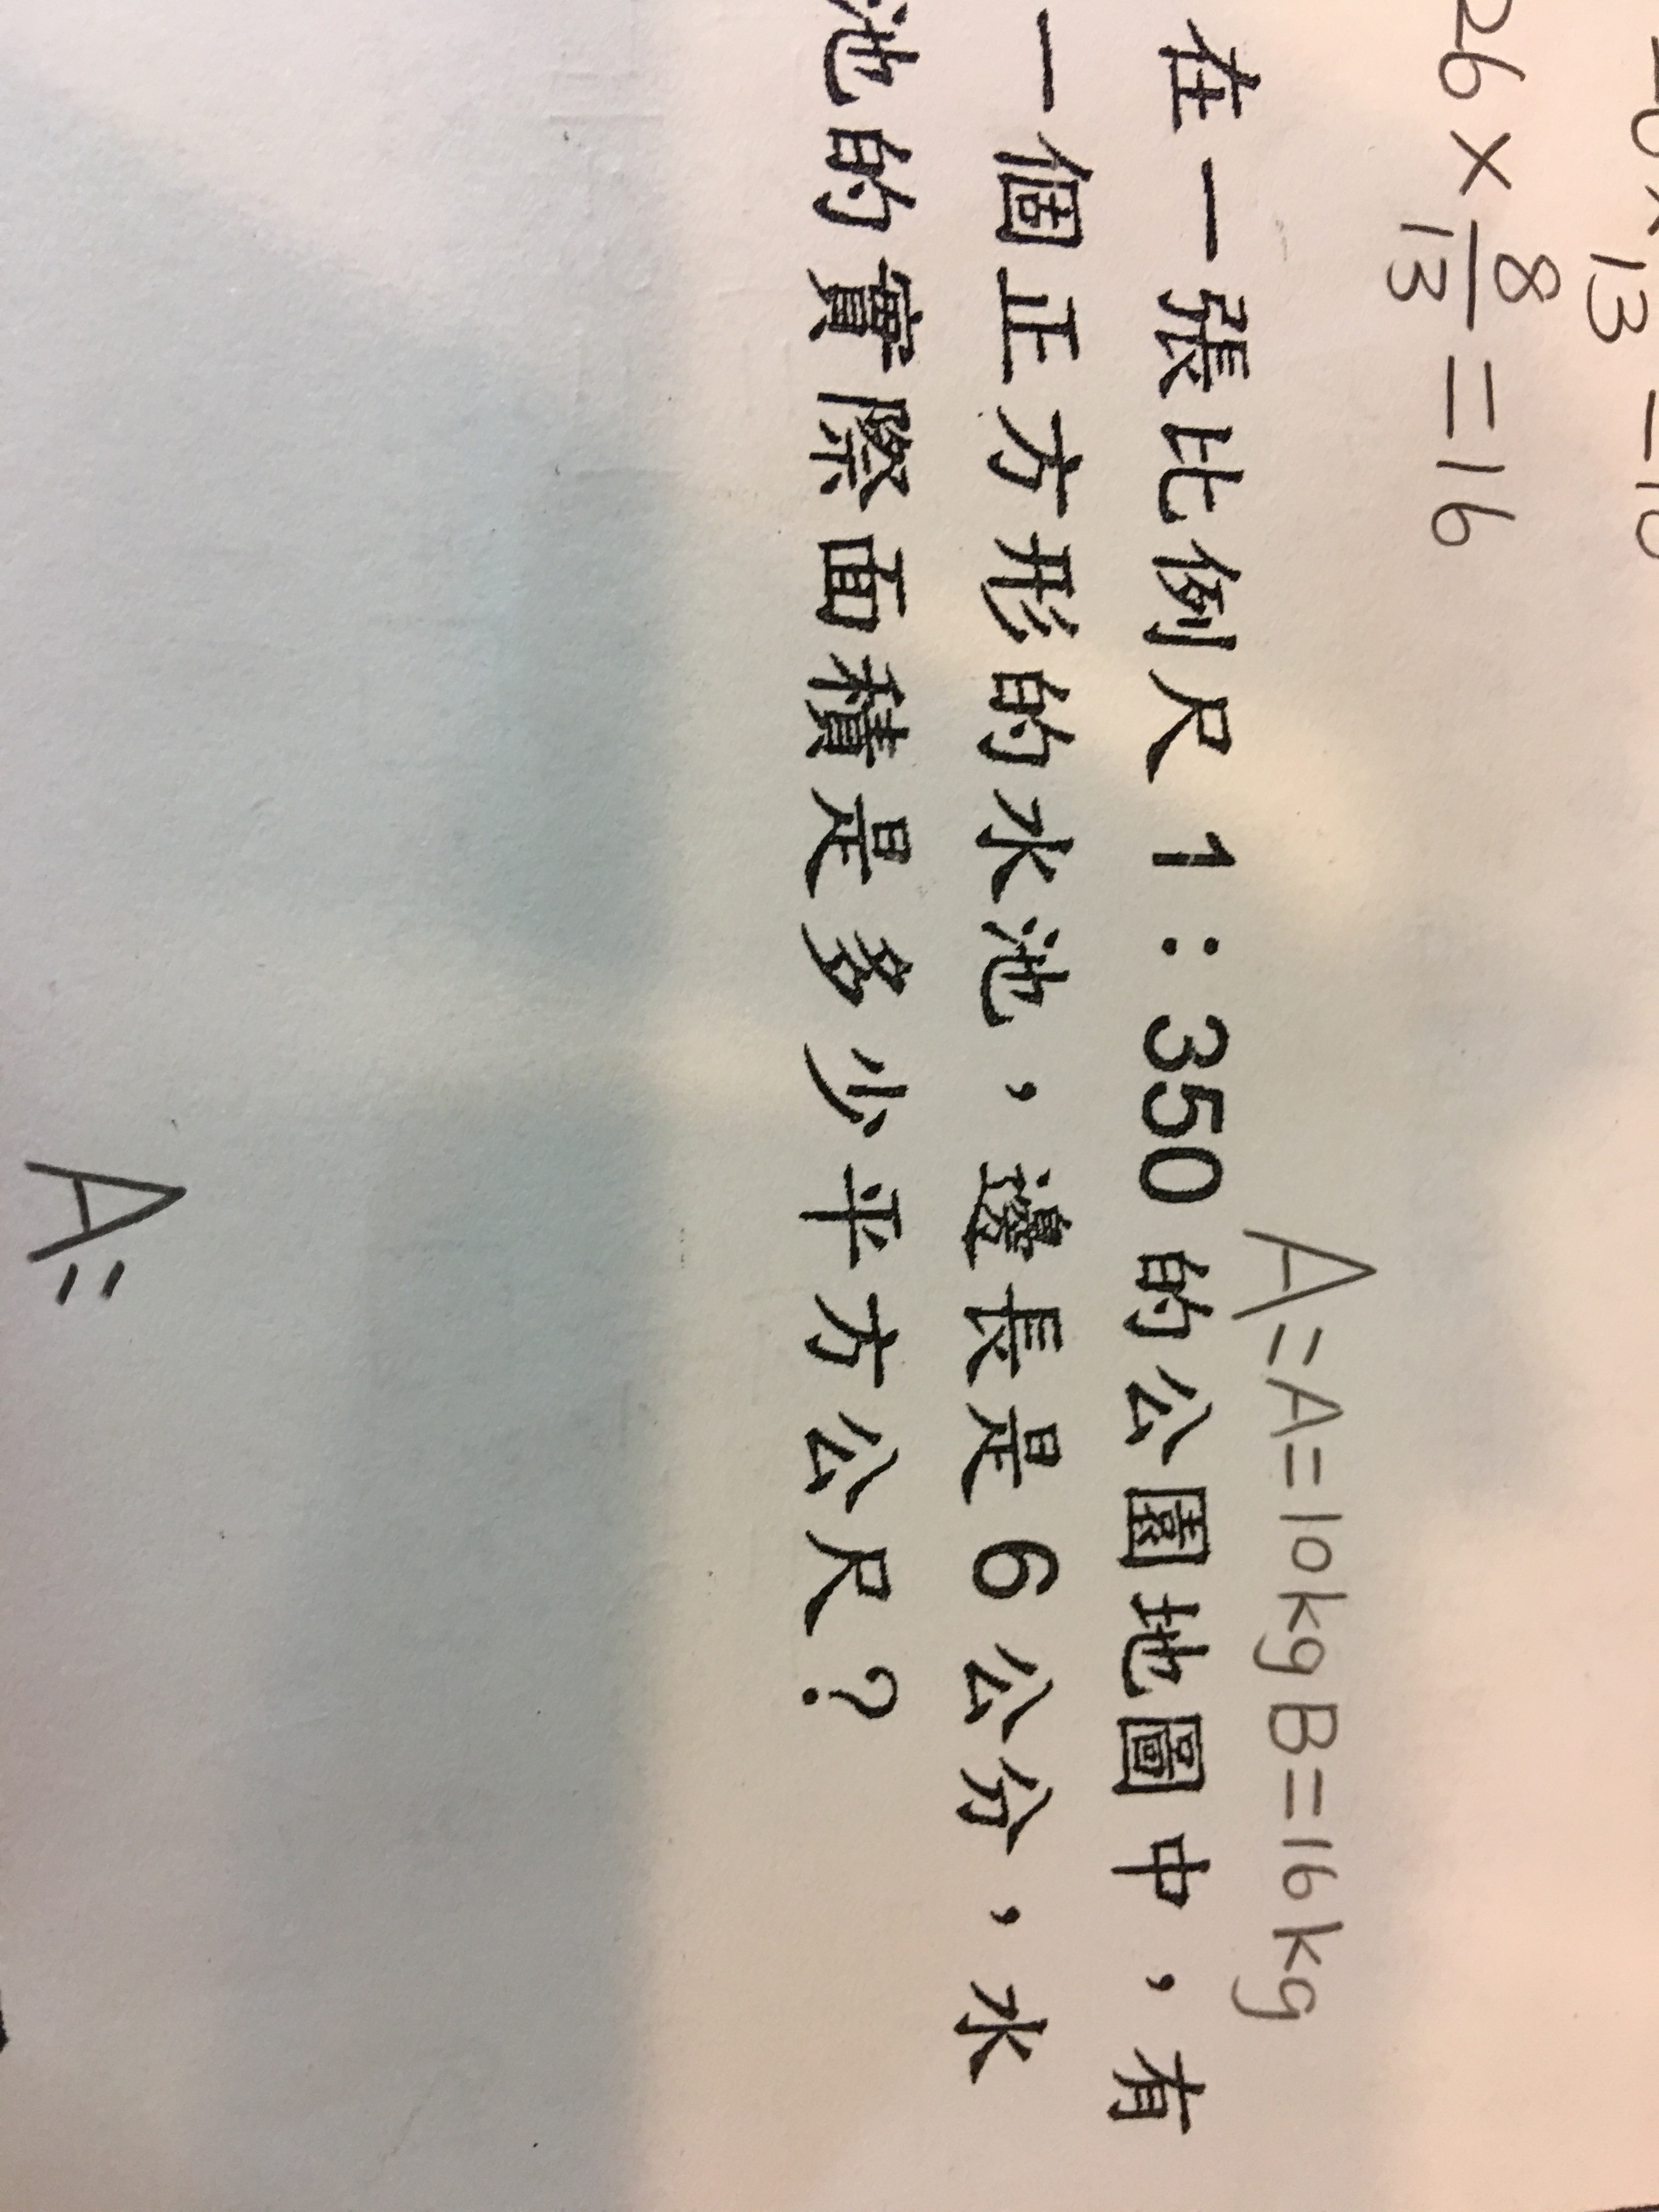 26×8/13=16
A=A=10kg B=16kg
在一張比例尺 1：350 的公園地圖中，有
一個正方形的水池，邊長是 6 公分，水
池的實際面積是多少平方公尺？
A=